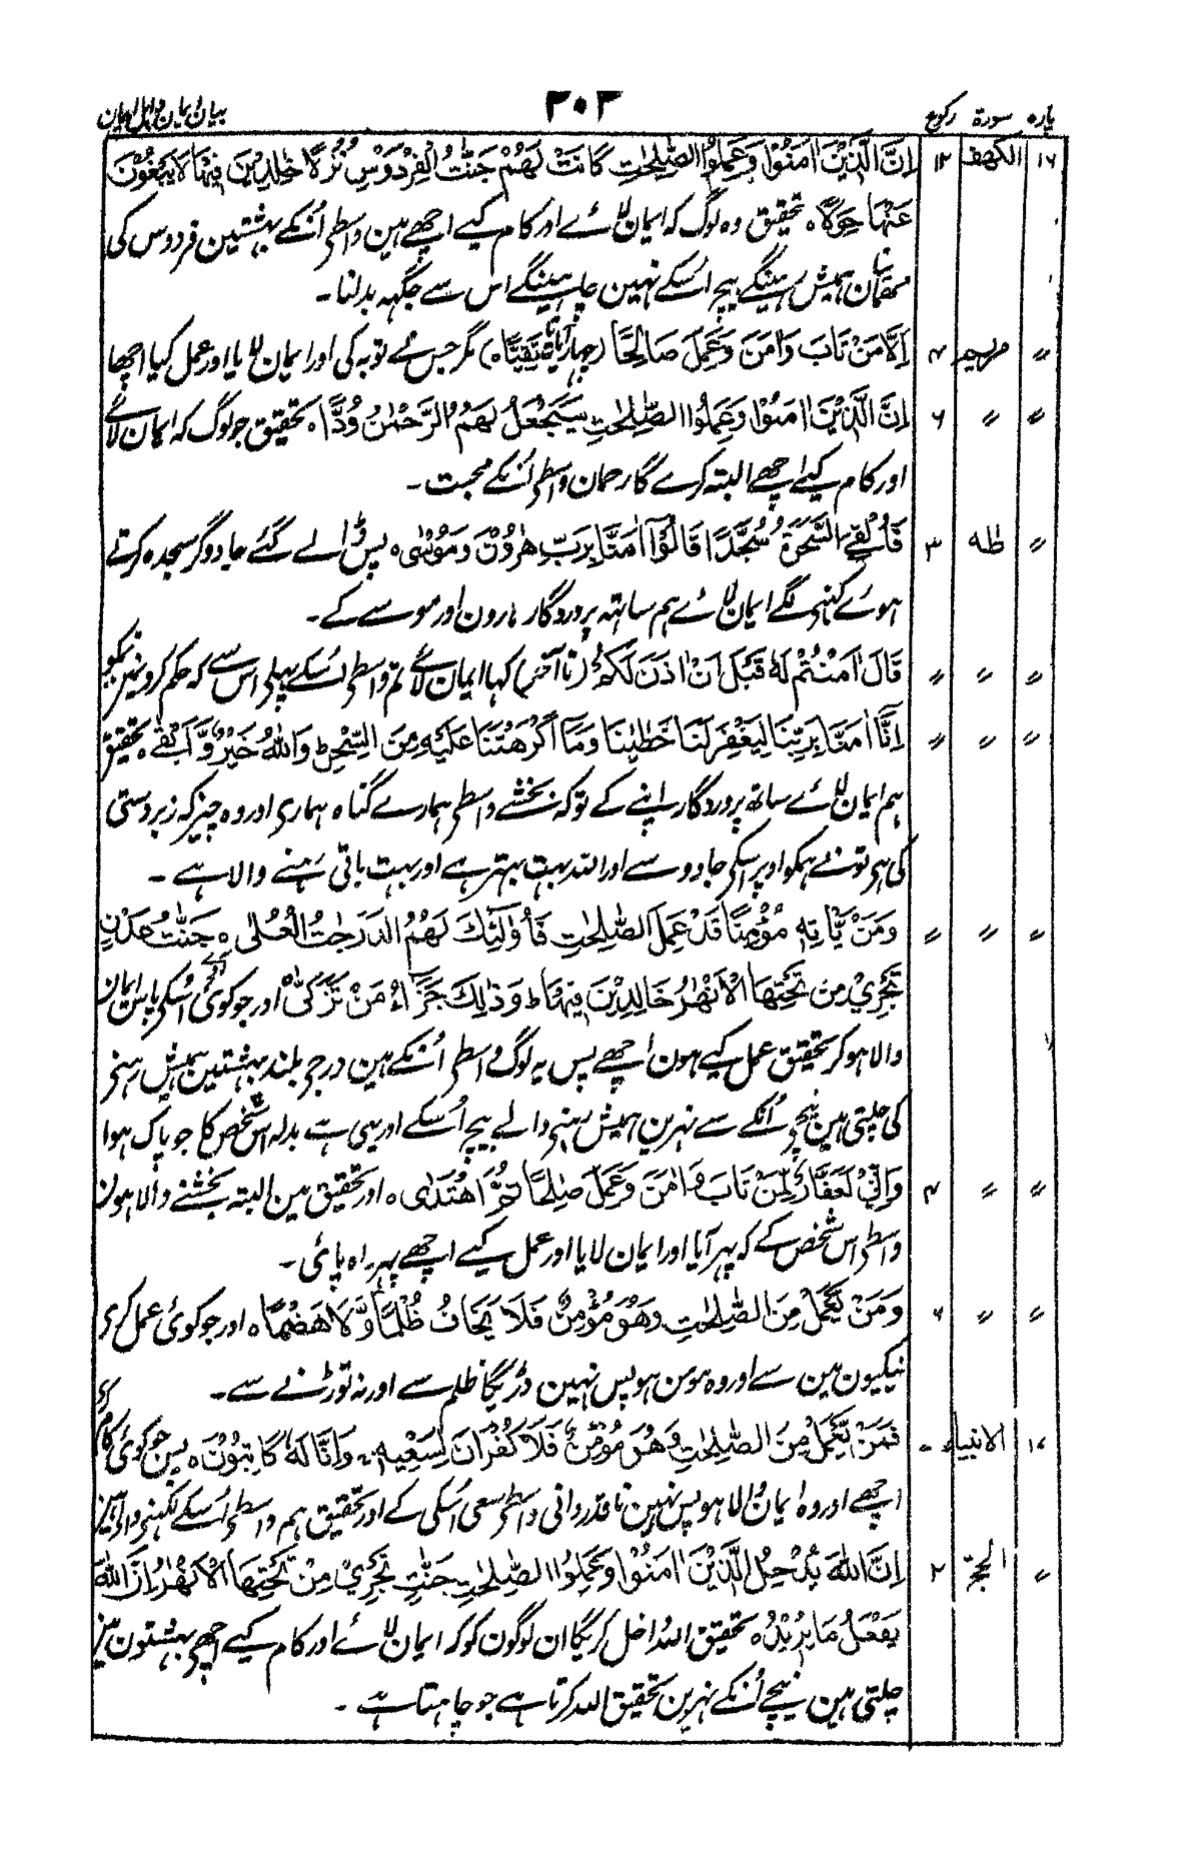 پارہ سورۃ رکوع ۲۰۳ بیان ایمان و اہل ایمان
۱۶ الکہف ۱۲ اِنَّ الَّذِیْنَ اٰمَنُوْا وَعَمِلُوا الصّٰلِحٰتِ كَانَتْ لَهُمْ جَنّٰتُ الْفِرْدَوْسِ نُزُلًا خٰلِدِیْنَ فِیْهَا لَا یَبْغُوْنَ
عَنْهَا حِوَلًا ہ تحقیق وہ لوگ کہ ایمان لائے اور کام کیے اچھے ہین واسطے اُنکے بہشتین فردوس کی
مہمان ہمیش رہینگے بیچ اُسکے نہین چاہینگے اس سے جگہہ بدلنا ۔
〃 مریم ۴ اِلَّا مَنْ تَابَ وَاٰمَنَ وَعَمِلَ صَالِحًا (چہار آیات تا تَقِیًّا ہ) مگر جس نے توبہ کی اور ایمان لایا اور عمل کیا اچھا
〃 〃 ۶ اِنَّ الَّذِیْنَ اٰمَنُوْا وَعَمِلُوا الصّٰلِحٰتِ سَیَجْعَلُ لَهُمُ الرَّحْمٰنُ وُدًّا ہ تحقیق جو لوگ کہ ایمان لائے
اور کام کیے اچھے البتہ کرے گا رحمان واسطے اُنکے محبت ۔
〃 طٰہٰ ۳ فَاُلْقِیَ السَّحَرَةُ سُجَّدًا قَالُوْٓا اٰمَنَّا بِرَبِّ هٰرُوْنَ وَمُوْسٰی ہ پس ڈالے گئے جادوگر سجدہ کرتے
ہوئے کہنے لگے ایمان لائے ہم ساتھہ پروردگار ہارون اور موسے کے ۔
〃 〃 〃 قَالَ اٰمَنْتُمْ لَهٗ قَبْلَ اَنْ اٰذَنَ لَكُمْ (تا آخر) کہا ایمان لائے تم واسطے اُسکے پہلے اس سے کہ حکم کرون مین تمکو
〃 〃 〃 اِنَّآ اٰمَنَّا بِرَبِّنَا لِیَغْفِرَ لَنَا خَطٰیٰنَا وَمَآ اَكْرَهْتَنَا عَلَیْهِ مِنَ السِّحْرِ ط وَاللهُ خَیْرٌ وَّاَبْقٰی ہ تحقیق
ہم ایمان لائے ساتھ پروردگار اپنے کے تو کہ بخشے واسطے ہمارے گناہ ہماری اور وہ چیز کہ زبردستی
کی ہے تونے ہمکو اوپر اسکے جادو سے اور اللہ بہت بہتر ہے اور بہت باقی رہنے والا ہے ۔
〃 〃 〃 وَمَنْ یَّاْتِهٖ مُؤْمِنًا قَدْ عَمِلَ الصّٰلِحٰتِ فَاُولٰٓئِكَ لَهُمُ الدَّرَجٰتُ الْعُلٰی ہ جَنّٰتُ عَدْنٍ
تَجْرِیْ مِنْ تَحْتِهَا الْاَنْهٰرُ خَالِدِیْنَ فِیْهَا ط وَذٰلِكَ جَزٰٓؤُا مَنْ تَزَكّٰی ہ اور جو کوئی آوے اُسکے پاس ایمان
والا ہو کر تحقیق عمل کیے ہون اچھے پس یہ لوگ واسطے اُنکے ہین درجے بلند بہشتین ہمیش رہنے
کی چلتی ہین نیچے اُنکے سے نہرین ہمیش رہنے والے بیچ اُسکے اور یہی ہے بدلہ اس شخص کا جو پاک ہوا
〃 〃 ۴ وَاِنِّیْ لَغَفَّارٌ لِّمَنْ تَابَ وَاٰمَنَ وَعَمِلَ صٰلِحًا ثُمَّ اهْتَدٰی ہ اور تحقیق مین البتہ بخشنے والا ہون
واسطے اس شخص کے کہ پہر آیا اور ایمان لایا اور عمل کیے اچھے پہر راہ پائی ۔
〃 〃 ۶ وَمَنْ یَّعْمَلْ مِنَ الصّٰلِحٰتِ وَهُوَ مُؤْمِنٌ فَلَا یَخَافُ ظُلْمًا وَّلَا هَضْمًا ہ اور جو کوئی عمل کرے
نیکیون مین سے اور وہ مومن ہو پس نہین ڈریگا ظلم سے اور نہ توڑنے سے ۔
۱۷ الانبیاء فَمَنْ یَّعْمَلْ مِنَ الصّٰلِحٰتِ وَهُوَ مُؤْمِنٌ فَلَا كُفْرَانَ لِسَعْیِهٖ ج وَاِنَّا لَهٗ كَاتِبُوْنَ ہ پس جو کوئی کام کرے
اچھے اور وہ ایمان والا ہو پس نہین ناقدردانی واسطے سعی اُسکی کے اور تحقیق ہم واسطے اُسکے لکھنے والے ہین
〃 الحج ۲ اِنَّ اللهَ یُدْخِلُ الَّذِیْنَ اٰمَنُوْا وَعَمِلُوا الصّٰلِحٰتِ جَنّٰتٍ تَجْرِیْ مِنْ تَحْتِهَا الْاَنْهٰرُ اِنَّ اللهَ
یَفْعَلُ مَا یُرِیْدُ ہ تحقیق اللہ داخل کریگا ان لوگون کو کہ ایمان لائے اور کام کیے اچھے بہشتون مین
چلتی ہین نیچے اُنکے نہرین تحقیق اللہ کرتا ہے جو چاہتا ہے ۔